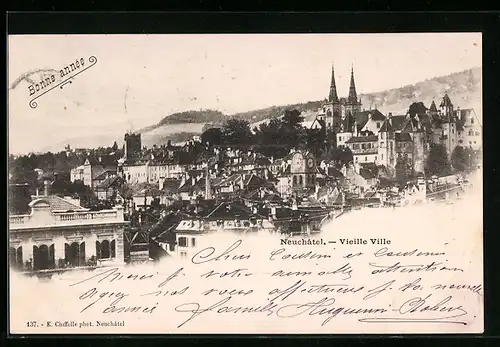 Bonne année
Neuchâtel. — Vieille Ville
Chers Cousin et cousine
Merci de votre aimable attention
agréez nos voeux affectueux p. la nouvelle
année Famille Huguenin Robert
137. - E. Chiffelle phot. Neuchâtel